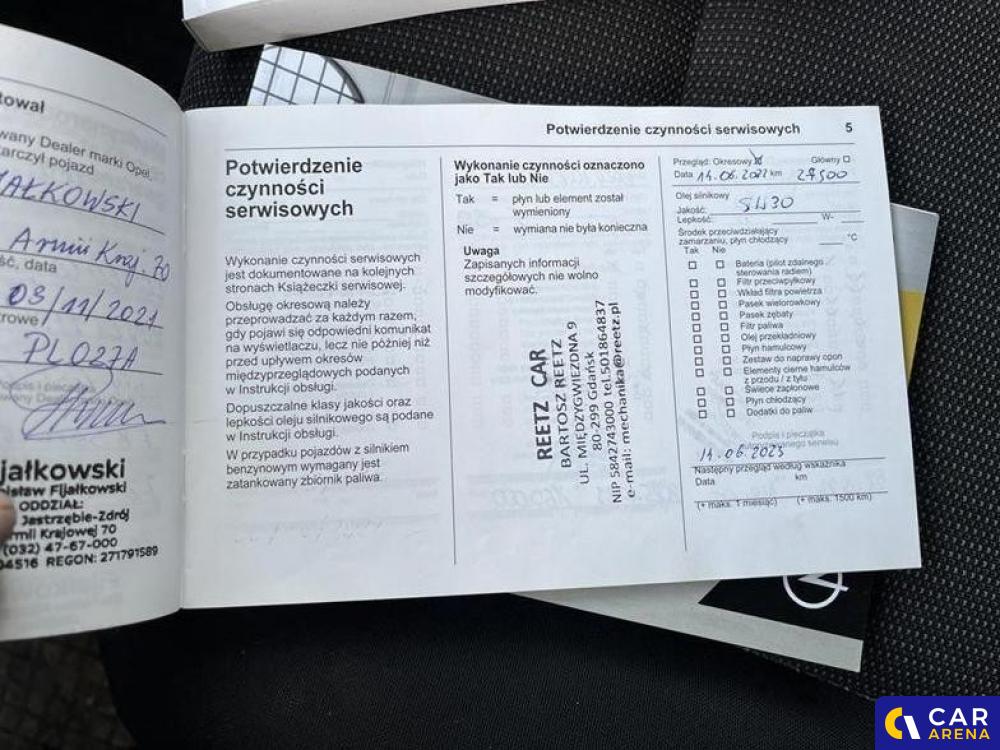 tował
wany Dealer marki Opel,
tarczył pojazd
AŁKOWSKI
Armii Kraj. 70
ść, data
03/11/2021
trowe
PLO27A
Podpis i pieczątka
jałkowski
isław Fijałkowski
ODDZIAŁ:
Jastrzębie-Zdrój
rmii Krajowej 70
(032) 47-67-000
04516 REGON: 271791589
Potwierdzenie czynności serwisowych 5
Potwierdzenie
czynności
serwisowych
Wykonanie czynności serwisowych
jest dokumentowane na kolejnych
stronach Książeczki serwisowej.
Obsługę okresową należy
przeprowadzać za każdym razem,
gdy pojawi się odpowiedni komunikat
na wyświetlaczu, lecz nie później niż
przed upływem okresów
międzyprzeglądowych podanych
w Instrukcji obsługi.
Dopuszczalne klasy jakości oraz
lepkości oleju silnikowego są podane
w Instrukcji obsługi.
W przypadku pojazdów z silnikiem
benzynowym wymagany jest
zatankowany zbiornik paliwa.
Wykonanie czynności oznaczono
jako Tak lub Nie
Tak = płyn lub element został
wymieniony
Nie = wymiana nie była konieczna
Uwaga
Zapisanych informacji
szczegółowych nie wolno
modyfikować.
REETZ CAR
BARTOSZ REETZ
UL. MIĘDZYGWIEZDNA 9
80-299 Gdańsk
NIP 5842743000 tel.501864837
e-mail: mechanika@reetz.pl
Przegląd: Okresowy Główny
Data 14.06.2022 km 27500
Olej silnikowy
Jakość: 5W30
Lepkość: W-
Środek przeciwdziałający
zamarzaniu, płyn chłodzący °C
Tak Nie
Bateria (pilot zdalnego
sterowania radiem)
Filtr przeciwpyłkowy
Wkład filtra powietrza
Pasek wielorowkowy
Pasek zębaty
Filtr paliwa
Olej przekładniowy
Płyn hamulcowy
Zestaw do naprawy opon
Elementy cierne hamulców
z przodu / z tyłu
Świece zapłonowe
Płyn chłodzący
Dodatki do paliw
Podpis i pieczątka
autoryzowanego serwisu
14.06.2023
Następny przegląd według wskaźnika
Data km
(+ maks. 1 miesiąc) (+ maks. 1500 km)
CAR
ARENA